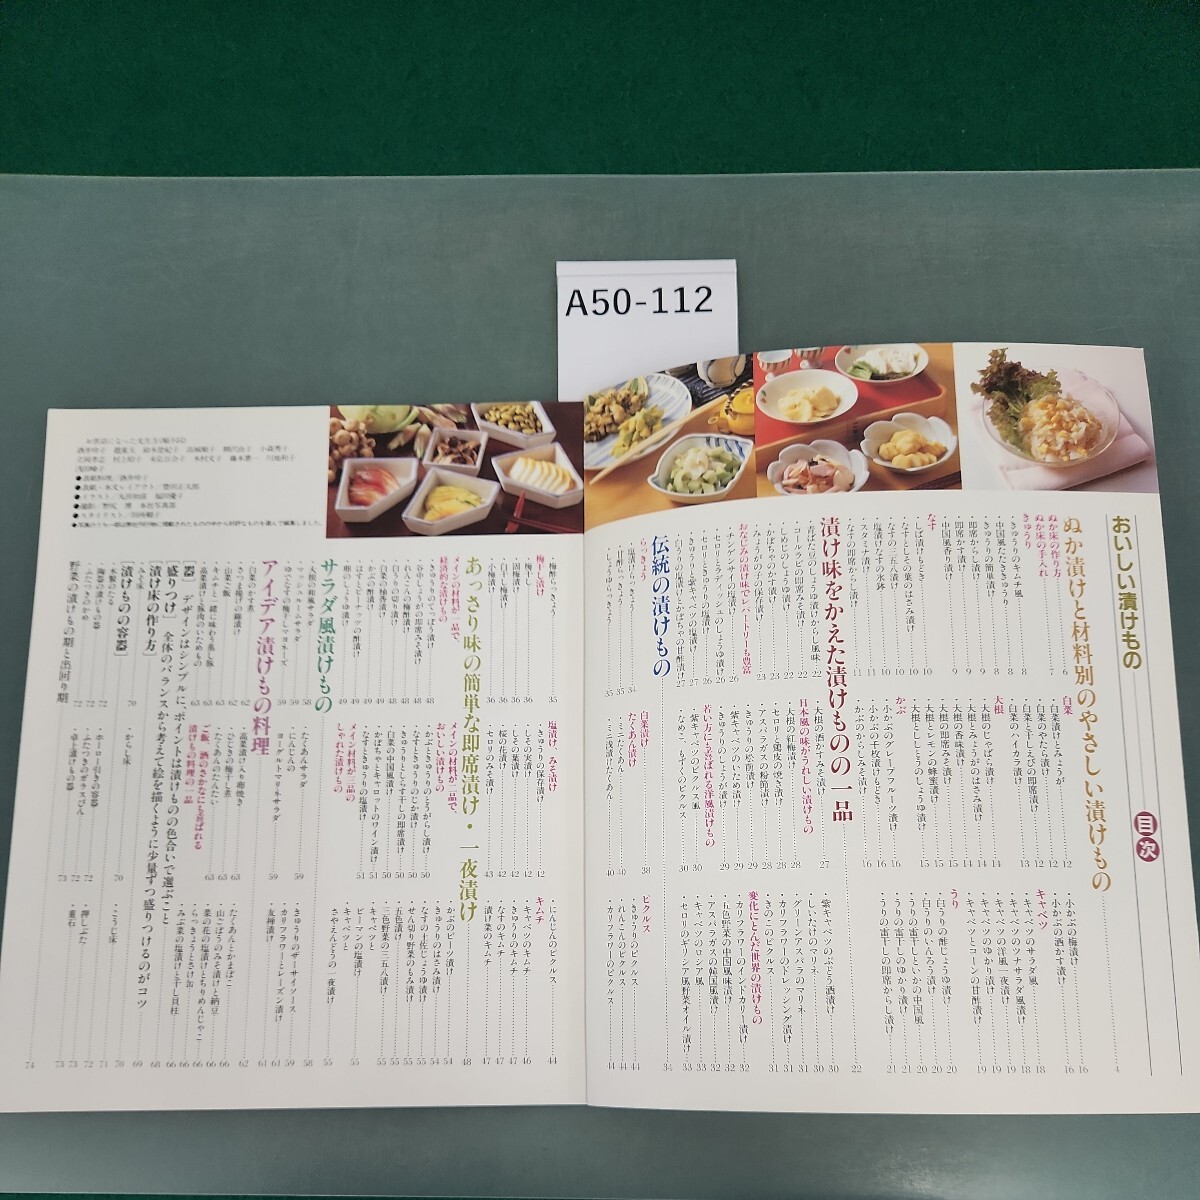 A50-112
おいしい漬けもの
目次
ぬか漬けと材料別のやさしい漬けもの
ぬか床の作り方
ぬか床の手入れ
きゅうり
きゅうりのキムチ風
中国風たたききゅうり
きゅうりの簡単漬け
即席からし漬け
即席かす漬け
中国風香り漬け
なす
しば漬けもどき
なすとしその葉のはさみ漬け
なすの三五八漬け
塩漬けなすの氷鉢
スタミナ漬け
なすの即席からし漬け
白菜
白菜漬け
白菜のやたら漬け
白菜と干しえびの即席漬け
白菜のハイカラ漬け
大根
大根のじゃばら漬け
大根とみょうがのはさみ漬け
大根の香味漬け
大根の即席みそ漬け
大根とレモンの蜂蜜漬け
大根とししとうのしょうゆ漬け
かぶ
小かぶのグレープフルーツ漬け
小かぶの千枚漬けもどき
かぶのからしみそ漬け
小かぶの梅漬け
小かぶの酒かす漬け
キャベツ
キャベツのサラダ風
キャベツのツナサラダ風漬け
キャベツの洋風一夜漬け
キャベツのゆかり漬け
キャベツとコーンの甘酢漬け
うり
白うりの酢じょうゆ漬け
白うりのいんろう漬け
白うりの雷干しといかの中国風
うりの雷干しのゆかり漬け
うりの雷干しの即席からし漬け
漬け味をかえた漬けものの一品
青ばなのしょうゆ漬けからし風味
コールラビの即席みそ漬け
しめじのしょうゆ漬け
かぼちゃのかす漬け
みょうがの子の保存漬け
おなじみの漬け味でレパートリーも豊富
チンゲンサイの塩漬け
セロリとラディッシュのしょうゆ漬け
セロリときゅうりの塩漬け
きゅうりと紫キャベツの塩漬け
白うりの塩漬けとかぼちゃの甘酢漬け
大根の酒かすみそ漬け
日本風の味がうれしい漬けもの
大根の紅梅漬け
セロリと鶏皮の焼き漬け
アスパラガスの粉節漬け
きゅうりの松前漬け
紫キャベツのいため漬け
きゅうりのしょうが漬け
若い方にも喜ばれる洋風漬けもの
紫キャベツのピクルス風
なめこ、もずくのピクルス
紫キャベツのぶどう酒漬け
しいたけのマリネ
グリーンアスパラのマリネ
カリフラワーのドレッシング漬け
きのこのピクルス
変化にとんだ世界の漬けもの
カリフラワーのインドカリー漬け
五色野菜の中国風味漬け
アスパラガスの韓国風漬け
キャベツのロシア風
セロリのギリシア風野菜オイル漬け
伝統の漬けもの
らっきょう
塩らっきょう
甘酢らっきょう
しょうゆらっきょう
白菜漬け
たくあん漬け
ミニたくあん
ミニ浅漬けたくあん
ピクルス
きゅうりのピクルス
れんこんのピクルス
カリフラワーのピクルス
梅酢らっきょう
梅干し漬け
梅干し
固梅漬け
白干し梅漬け
小梅漬け
塩漬け、みそ漬け
きゅうりの保存漬け
しその実漬け
しその葉漬け
桜の花漬け
セロリのみそ漬け
にんじんのピクルス
キムチ
キャベツのキムチ
きゅうりのキムチ
なすのキムチ
漬け菜のキムチ
あっさり味の簡単な即席漬け・一夜漬け
メインの材料が一品で、
経済的な漬けもの
きゅうりのてっぽう漬け
谷中しょうがの即席みそ漬け
れんこんの梅酢漬け
白うりの切り漬け
白菜のゆず香漬け
かぶの酢漬け
はすとピーナッツの酢漬け
卵のしょうゆ漬け
メインの材料が二品で、
おいしい漬けもの
かぶときゅうりのとうがらし漬け
きゅうりのじか漬け
きゅうりとしらす干しの即席漬け
白菜の中国風漬け
かぼちゃとキャロットのワイン漬け
なすときゅうりの塩漬け
メイン材料が三品の
しゃれた漬けもの
かぶのビーツ漬け
きゅうりのはさみ漬け
なすの土佐じょうゆ漬け
せん切り野菜のもみ漬け
五色漬け
三色野菜の三五八漬け
キャベツと
ピーマンの塩漬け
キャベツと
さやえんどうの一夜漬け
サラダ風漬けもの
大根の和風サラダ
マッシュルームサラダ
ゆでなすの梅干しマヨネーズ
たくあんサラダ
にんじんの
ヨーグルトマリネサラダ
きゅうりのザーサイソース
カリフラワーとレーズン漬け
友禅漬け
アイデア漬けもの料理
白菜のかす煮
山菜ご飯
さつま揚げの錦漬け
キムチと一緒に味わう蒸し豚
高菜漬けと豚肉のいためもの
高菜漬け入り卵焼き
ひじきの梅干し煮
たくあんのたんたい
ご飯、酒のさかなにも喜ばれる
漬けもの料理の一品
たくあんとかまぼこ
山ごぼうのみそ漬けと納豆
菜の花の塩漬けとちりめんじゃこ
らっきょうとさけ缶
みぶ菜の塩漬けと干し貝柱
[器] デザインはシンプルに、ポイントは漬けものの色合いで選ぶこと
[盛りつけ] 全体のバランスから考えて絵を描くように少量ずつ盛りつけるのがコツ
[漬け床の作り方]
みそ床
からし床
こうじ床
[漬けものの容器]
木製のたる
陶器の漬けもの器
ふたつきのかめ
ホーロー引きの容器
ふたつきのガラスびん
卓上漬けもの器
押しぶた
重石
野菜の漬けもの期と出回り期
お世話になった先生方(順不同)
●表紙料理／酒井玲子
●表紙・本文レイアウト／豊田正太郎
●写真のうち一部は弊社刊行物に掲載されたものの中から好評なものを選んで編集しました。